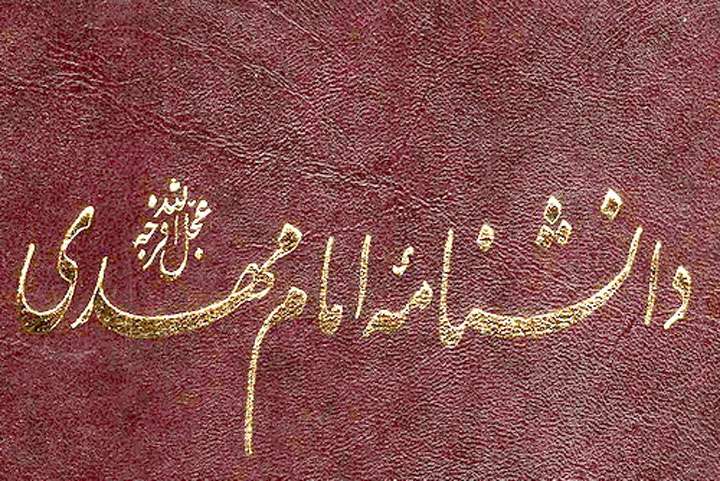 دانشنامهٔ امام مهدی عجل الله فرجه